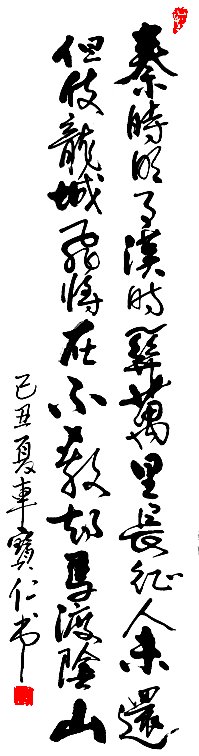 秦時明月漢時關萬里長征人未還
但使龍城飛將在不教胡馬渡陰山
己丑夏車寶仁书